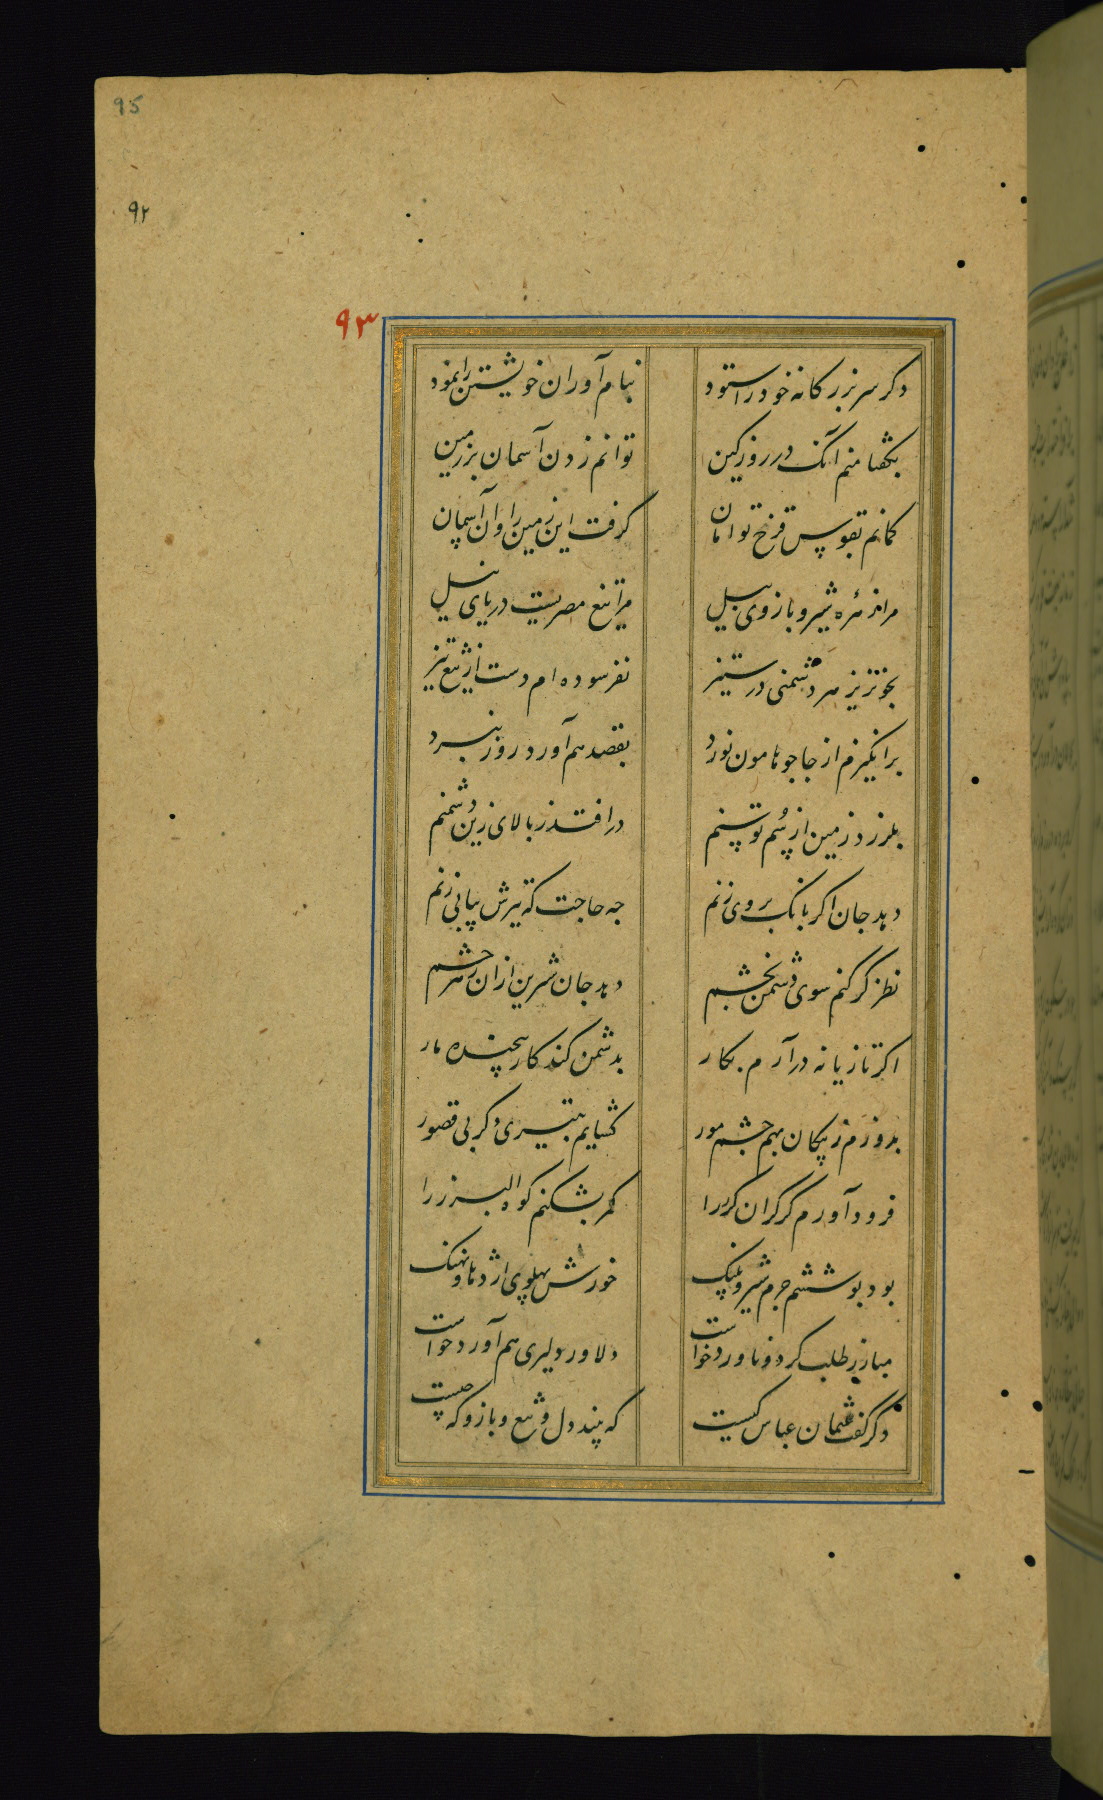 95
۹۲
۹۳
دکر سربزرکانه خود را ستود بنام آوران خویشتن را نمود
بکفتا منم آنک در روز کین توانم زدن آسمان بر زمین
کمانم بقوس قزح توامان کرفت این زمین را و آن آسمان
مرا زهره شیر و بازوی پیل مرا تیغ مصریست دریای نیل
بخونریز هر دشمنی در ستیز نفرسوده ام دست از تیغ تیز
برانکیزم از جا جو هامون نورد بقصد هم آورد روز نبرد
بلرزد زمین از سم توسنم درافتد ز بالای زین دشمنم
دهد جان اکر بانک بروی زنم جه حاجت که تیرش پیاپی زنم
نظر کر کنم سوی دشمن بخشم دهد جان شیرین از ان زهر جشم
اکر تازیانه درآرم بکار بدشمن کند کار پیجنده مار
بدوزم ز پیکان بهم جشم مور کشایم بتیری دکر بی قصور
فرود آورم کر کران کرز را کمر بشکنم کوه البرز را
بود بوششم جرم شیر و پلنک خورش پهلوی اژدها و نهنک
مبارز طلب کرد و ناورد خواست دلاور دلیری هم آورد خواست
دکر کفت عثمان عباس کیست که پند دل و تیغ و بازو که جیست